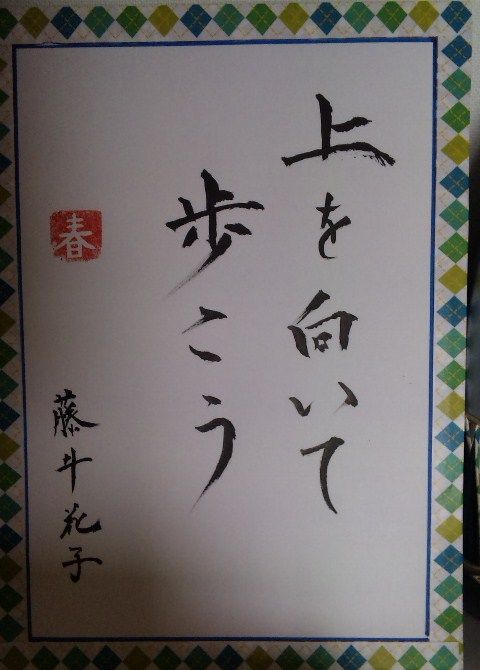 上を向いて
歩こう
春
藤斗花子